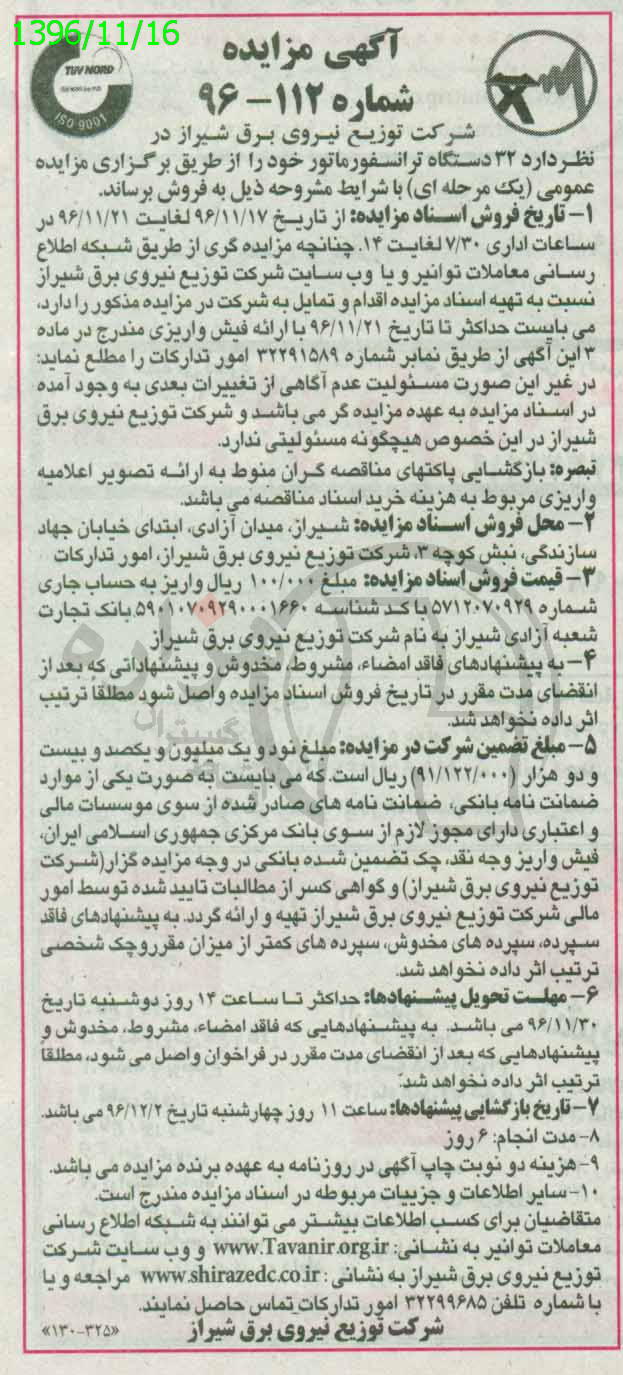 1396/11/16
آگهی مزایده
شماره ۱۱۲-۹۶
TUV NORD
ISO 9001
شرکت توزیع نیروی برق شیراز در
نظر دارد ۳۲ دستگاه ترانسفورماتور خود را از طریق برگزاری مزایده
عمومی (یک مرحله ای) با شرایط مشروحه ذیل به فروش برساند.
۱- تاریخ فروش اسناد مزایده: از تاریخ ۹۶/۱۱/۱۷ لغایت ۹۶/۱۱/۲۱ در
ساعات اداری ۷/۳۰ لغایت ۱۴. چنانچه مزایده گری از طریق شبکه اطلاع
رسانی معاملات توانیر و یا وب سایت شرکت توزیع نیروی برق شیراز
نسبت به تهیه اسناد مزایده اقدام و تمایل به شرکت در مزایده مذکور را دارد،
می بایست حداکثر تا تاریخ ۹۶/۱۱/۲۱ با ارائه فیش واریزی مندرج در ماده
۳ این آگهی از طریق نمابر شماره ۳۲۲۹۱۵۸۹ امور تدارکات را مطلع نماید:
در غیر این صورت مسئولیت عدم آگاهی از تغییرات بعدی به وجود آمده
در اسناد مزایده به عهده مزایده گر می باشد و شرکت توزیع نیروی برق
شیراز در این خصوص هیچگونه مسئولیتی ندارد.
تبصره: بازگشایی پاکتهای مناقصه گران منوط به ارائه تصویر اعلامیه
واریزی مربوط به هزینه خرید اسناد مناقصه می باشد.
۲- محل فروش اسناد مزایده: شیراز، میدان آزادی، ابتدای خیابان جهاد
سازندگی، نبش کوچه ۳، شرکت توزیع نیروی برق شیراز، امور تدارکات
۳- قیمت فروش اسناد مزایده: مبلغ ۱۰۰/۰۰۰ ریال واریز به حساب جاری
شماره ۵۷۱۲۰۷۰۹۲۹ با کد شناسه ۵۹۰۱۰۷۰۹۲۹۰۰۰۱۶۶۰ بانک تجارت
شعبه آزادی شیراز به نام شرکت توزیع نیروی برق شیراز
۴- به پیشنهادهای فاقد امضاء، مشروط، مخدوش و پیشنهاداتی که بعد از
انقضای مدت مقرر در تاریخ فروش اسناد مزایده واصل شود مطلقاً ترتیب
اثر داده نخواهد شد.
۵- مبلغ تضمین شرکت در مزایده: مبلغ نود و یک میلیون و یکصد و بیست
و دو هزار (۹۱/۱۲۲/۰۰۰) ریال است. که می بایست به صورت یکی از موارد
ضمانت نامه بانکی، ضمانت نامه های صادر شده از سوی موسسات مالی
و اعتباری دارای مجوز لازم از سوی بانک مرکزی جمهوری اسلامی ایران،
فیش واریز وجه نقد، چک تضمین شده بانکی در وجه مزایده گزار(شرکت
توزیع نیروی برق شیراز) و گواهی کسر از مطالبات تایید شده توسط امور
مالی شرکت توزیع نیروی برق شیراز تهیه و ارائه گردد. به پیشنهادهای فاقد
سپرده، سپرده های مخدوش، سپرده های کمتر از میزان مقرروچک شخصی
ترتیب اثر داده نخواهد شد.
۶- مهلت تحویل پیشنهادها: حداکثر تا ساعت ۱۴ روز دوشنبه تاریخ
۹۶/۱۱/۳۰ می باشد. به پیشنهادهایی که فاقد امضاء، مشروط، مخدوش و
پیشنهادهایی که بعد از انقضای مدت مقرر در فراخوان واصل می شود، مطلقاً
ترتیب اثر داده نخواهد شد.
۷- تاریخ بازگشایی پیشنهادها: ساعت ۱۱ روز چهارشنبه تاریخ ۹۶/۱۲/۲ می باشد.
۸- مدت انجام: ۶ روز
۹- هزینه دو نوبت چاپ آگهی در روزنامه به عهده برنده مزایده می باشد.
۱۰- سایر اطلاعات و جزییات مربوطه در اسناد مزایده مندرج است.
متقاضیان برای کسب اطلاعات بیشتر می توانند به شبکه اطلاع رسانی
معاملات توانیر به نشانی: www.Tavanir.org.ir و وب سایت شرکت
توزیع نیروی برق شیراز به نشانی : www.shirazedc.co.ir مراجعه و یا
با شماره تلفن ۳۲۲۹۹۶۸۵ امور تدارکات تماس حاصل نمایند.
شرکت توزیع نیروی برق شیراز
«۱۳۰-۳۲۵»